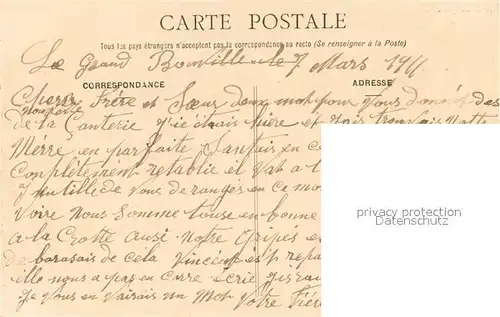 CARTE POSTALE
Tous les pays étrangers n'acceptent pas la correspondance au recto (Se renseigner à la Poste)
Le Grand Bouville le 7 Mars 1911
CORRESPONDANCE ADRESSE
Chers Frère et Sœur deux mot pour vous donné des
nouvelle
de la Santerie J'ie étais hière et J'ais trouvais Notte
Merre en parfaite Santais en ce
Complêtement retablie et Vat a l
inutille de vous deranges en ce mo
Voire nous Somme touse en bonne
a la Crotte ausi notre Gripés e
de barasais de cela Vincent est repa
ille nous a pas en carre écrie
Je vous en Vairais un Mot Votre Frère
privacy protection
watermark